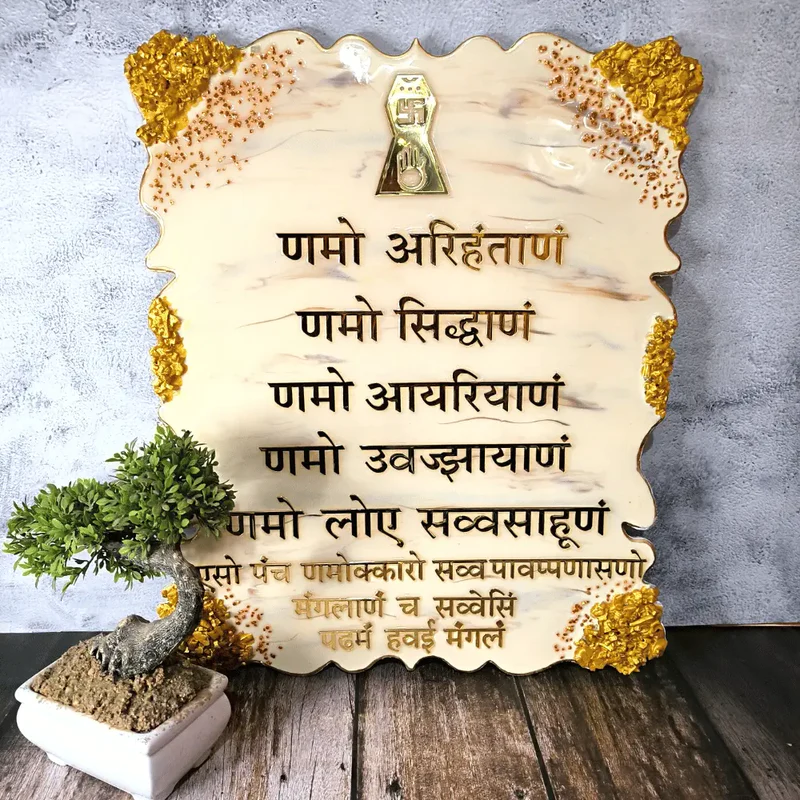 णमो अरिहंताणं
णमो सिद्धाणं
णमो आयरियाणं
णमो उवज्झायाणं
णमो लोए सव्वसाहूणं
एसो पंच णमोक्कारो सव्व पावप्पणासणो
मंगलाणं च सव्वेसिं
पढमं हवई मंगलं